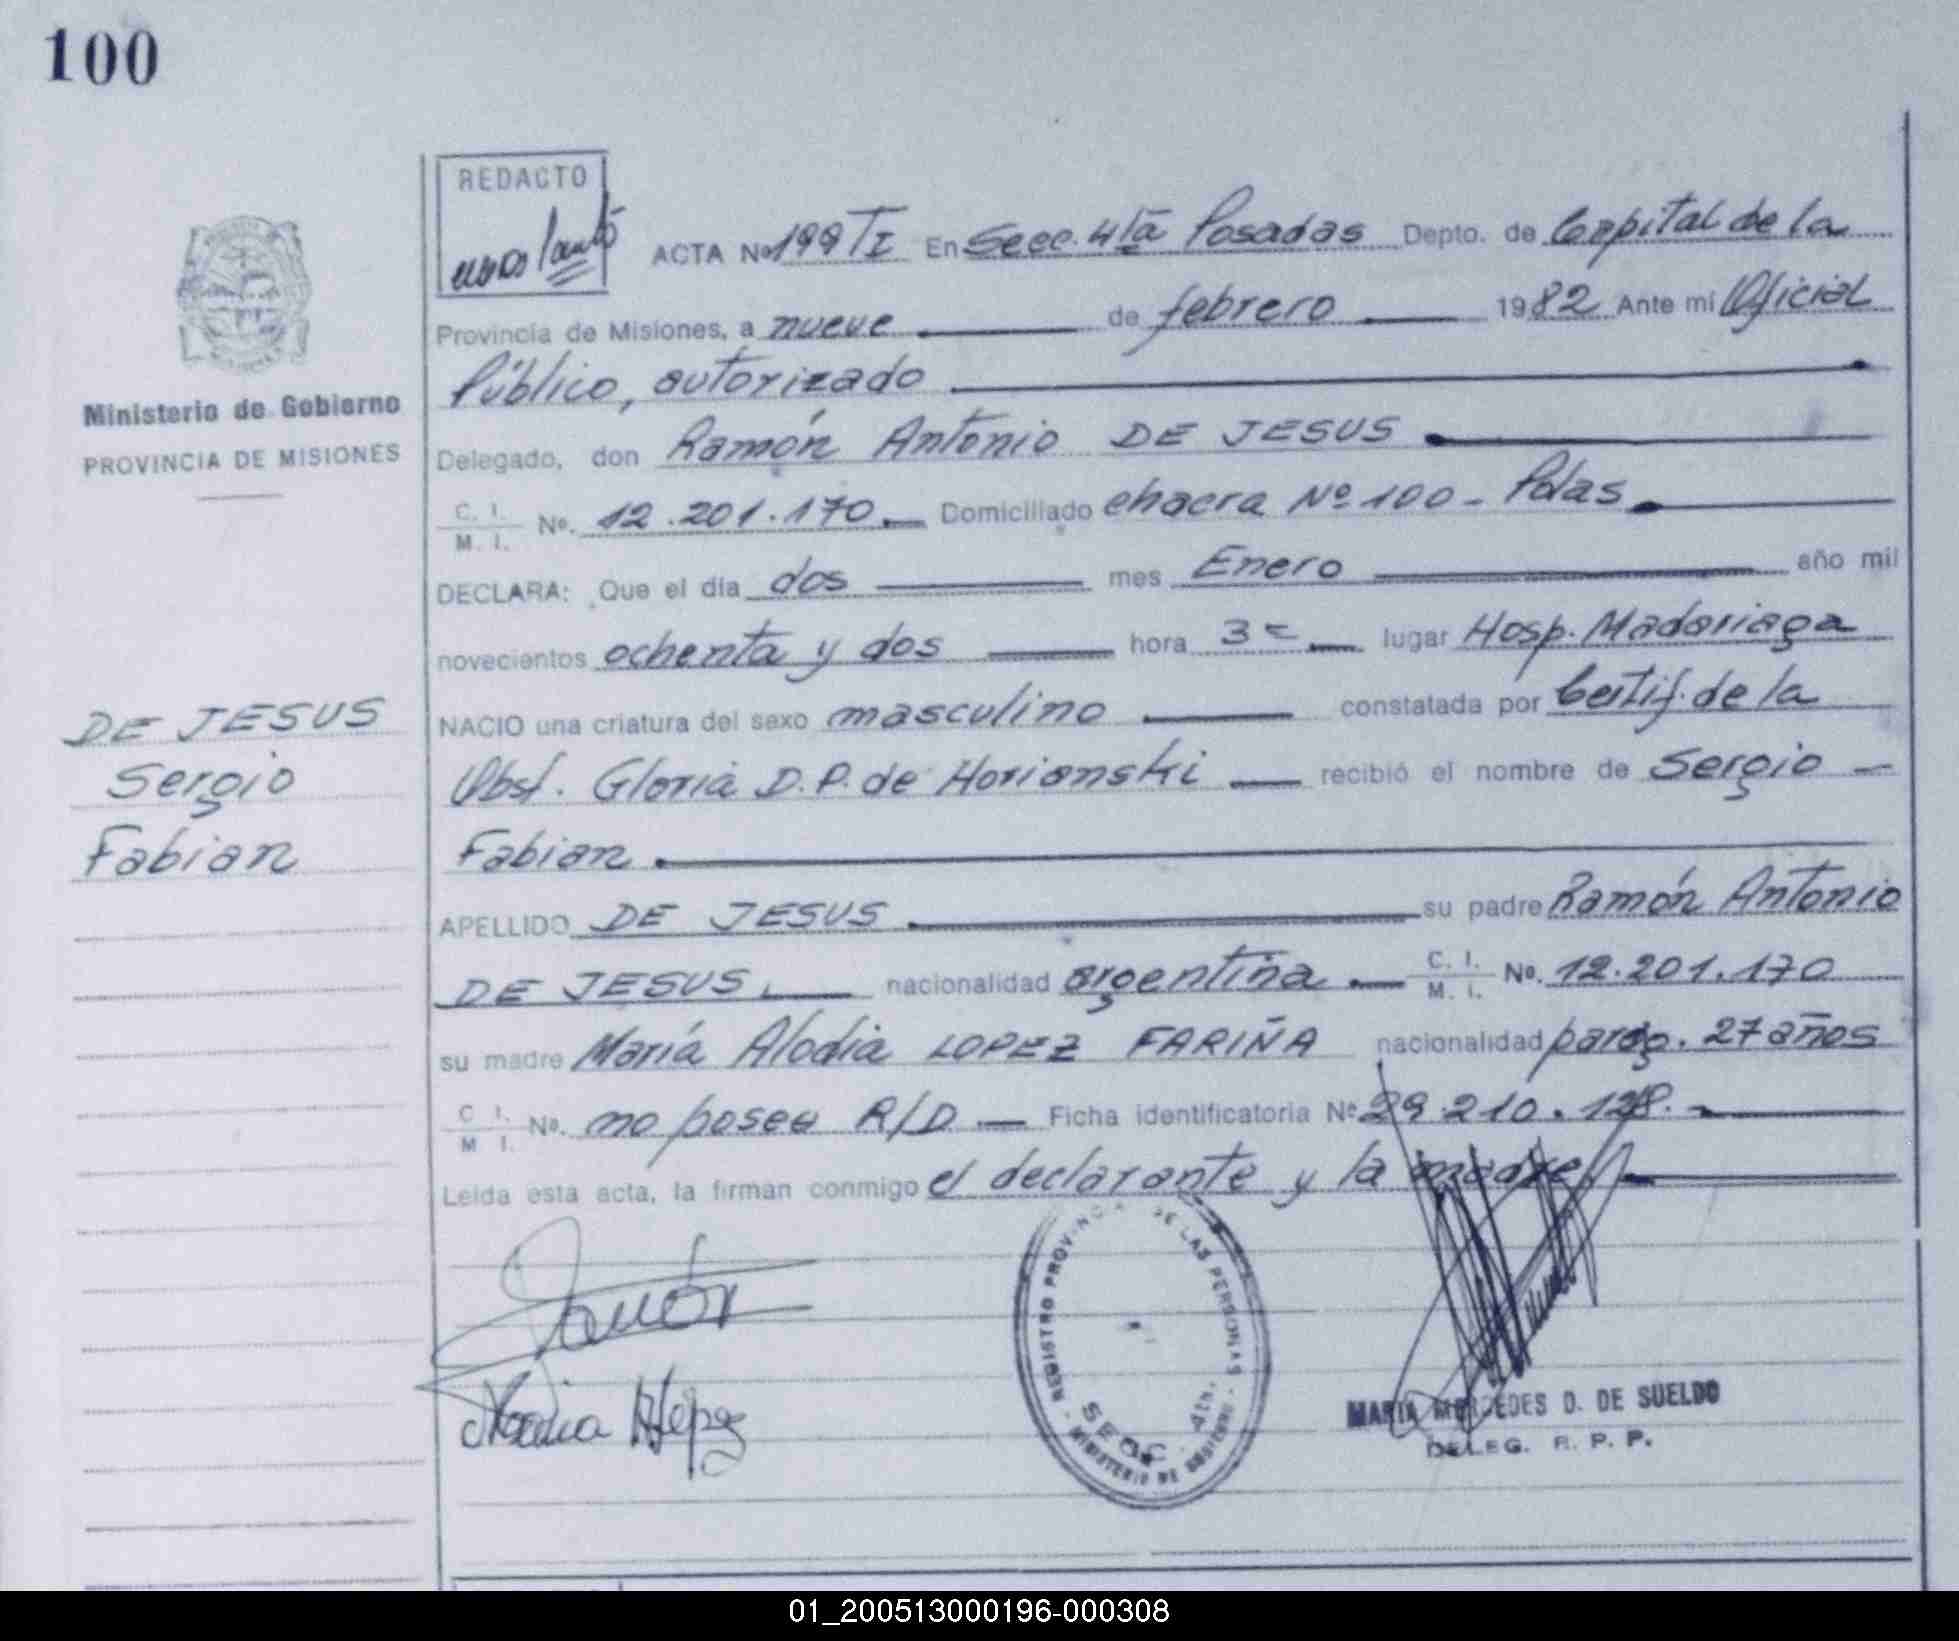 100
REDACTO
ACTA Nº 199 T I En Secc. 4ta Posadas Depto. de Capital de la
Provincia de Misiones, a nueve de febrero 1982 Ante mi Oficial
Público, autorizado
Delegado, don Ramón Antonio DE JESUS
C. I. / M. I. Nº. 12.201.170 Domiciliado chacra Nº 100 - Pdas
DECLARA: Que el día dos mes Enero año mil
novecientos ochenta y dos hora 3 lugar Hosp. Madariaga
NACIO una criatura del sexo masculino constatada por Certif. de la
Obst. Gloria D. P. de Horianski recibió el nombre de Sergio
Fabian
APELLIDO DE JESUS su padre Ramón Antonio
DE JESUS nacionalidad argentina C. I. / M. I. Nº. 12.201.170
su madre María Alodia LOPEZ FARIÑA nacionalidad parag. 27 años
C I. / M I. Nº. no posee R/D Ficha identificatoria Nº 29.210.128.
Leída esta acta, la firman conmigo el declarante y la madre
Ministerio de Gobierno
PROVINCIA DE MISIONES
DE JESUS
Sergio
Fabian
Ramón
REGISTRO PROVINCIAL DE LAS PERSONAS
SECC. 4ta.
MINISTERIO DE GOBIERNO
MARIA MERCEDES D. DE SUELDO
DELEG. R. P. P.
01_200513000196-000308